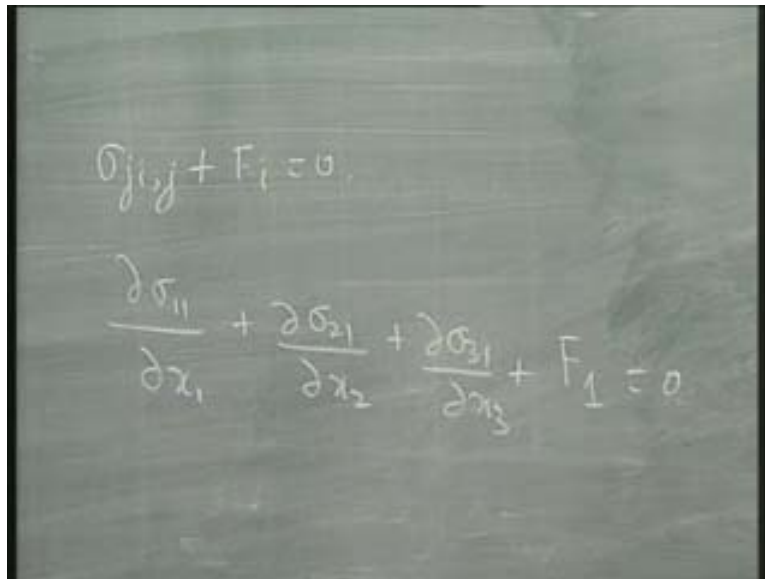 σ_{ji,j} + F_i = 0.
∂σ₁₁/∂x₁ + ∂σ₂₁/∂x₂ + ∂σ₃₁/∂x₃ + F₁ = 0